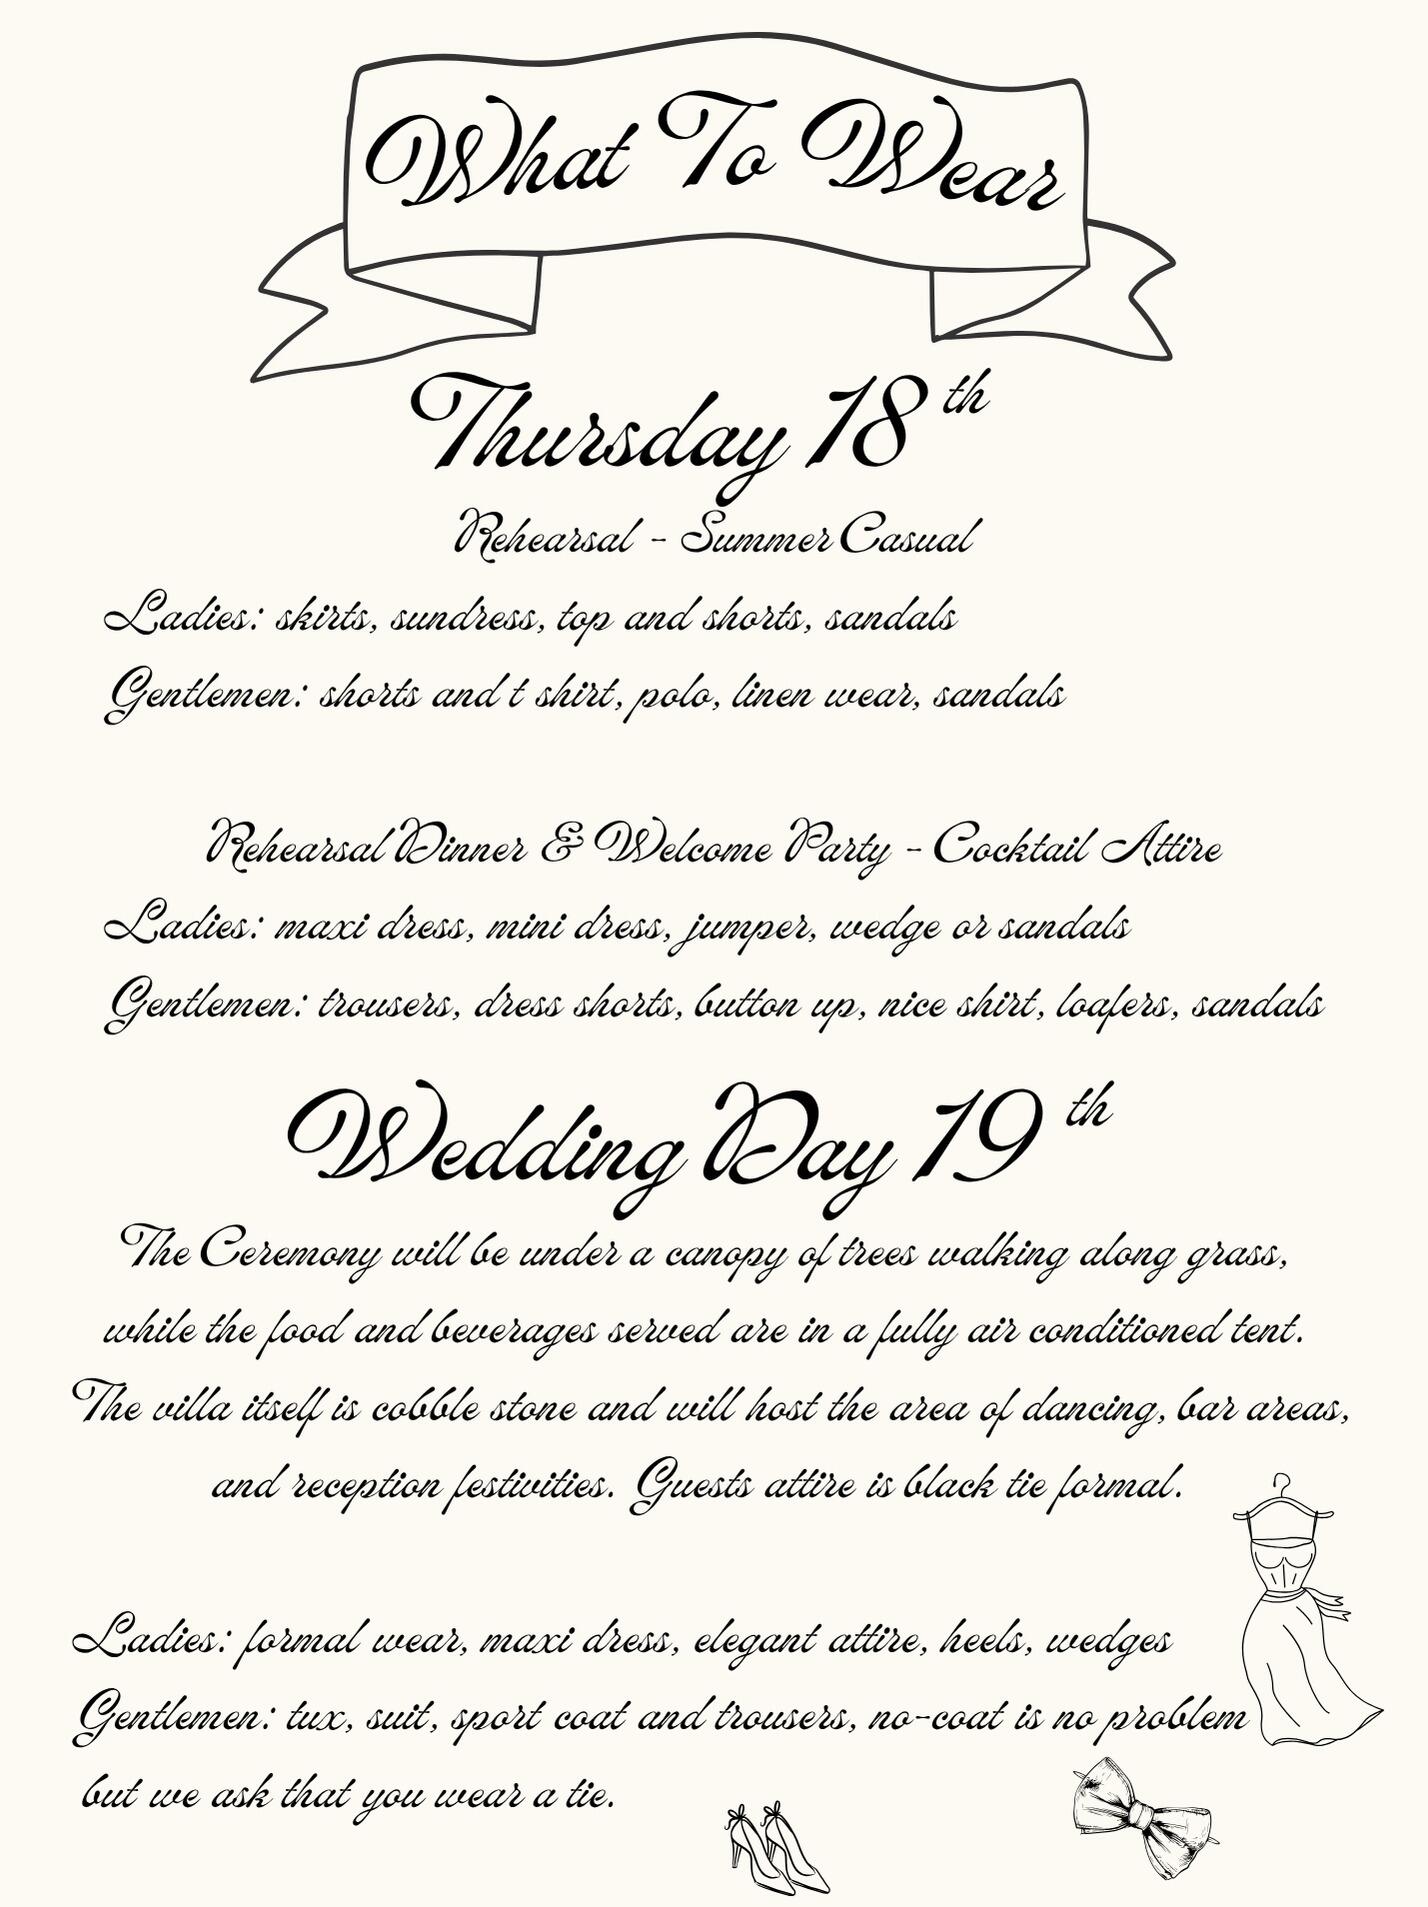 What To Wear
Thursday 18th
Rehearsal - Summer Casual
Ladies: skirts, sundress, top and shorts, sandals
Gentlemen: shorts and t shirt, polo, linen wear, sandals
Rehearsal Dinner & Welcome Party - Cocktail Attire
Ladies: maxi dress, mini dress, jumper, wedge or sandals
Gentlemen: trousers, dress shorts, button up, nice shirt, loafers, sandals
Wedding Day 19th
The Ceremony will be under a canopy of trees walking along grass,
while the food and beverages served are in a fully air conditioned tent.
The villa itself is cobble stone and will host the area of dancing, bar areas,
and reception festivities. Guests attire is black tie formal.
Ladies: formal wear, maxi dress, elegant attire, heels, wedges
Gentlemen: tux, suit, sport coat and trousers, no-coat is no problem
but we ask that you wear a tie.